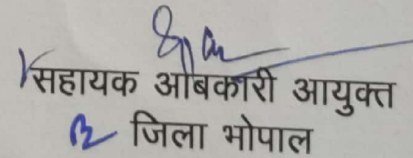 सहायक आबकारी आयुक्त
जिला भोपाल